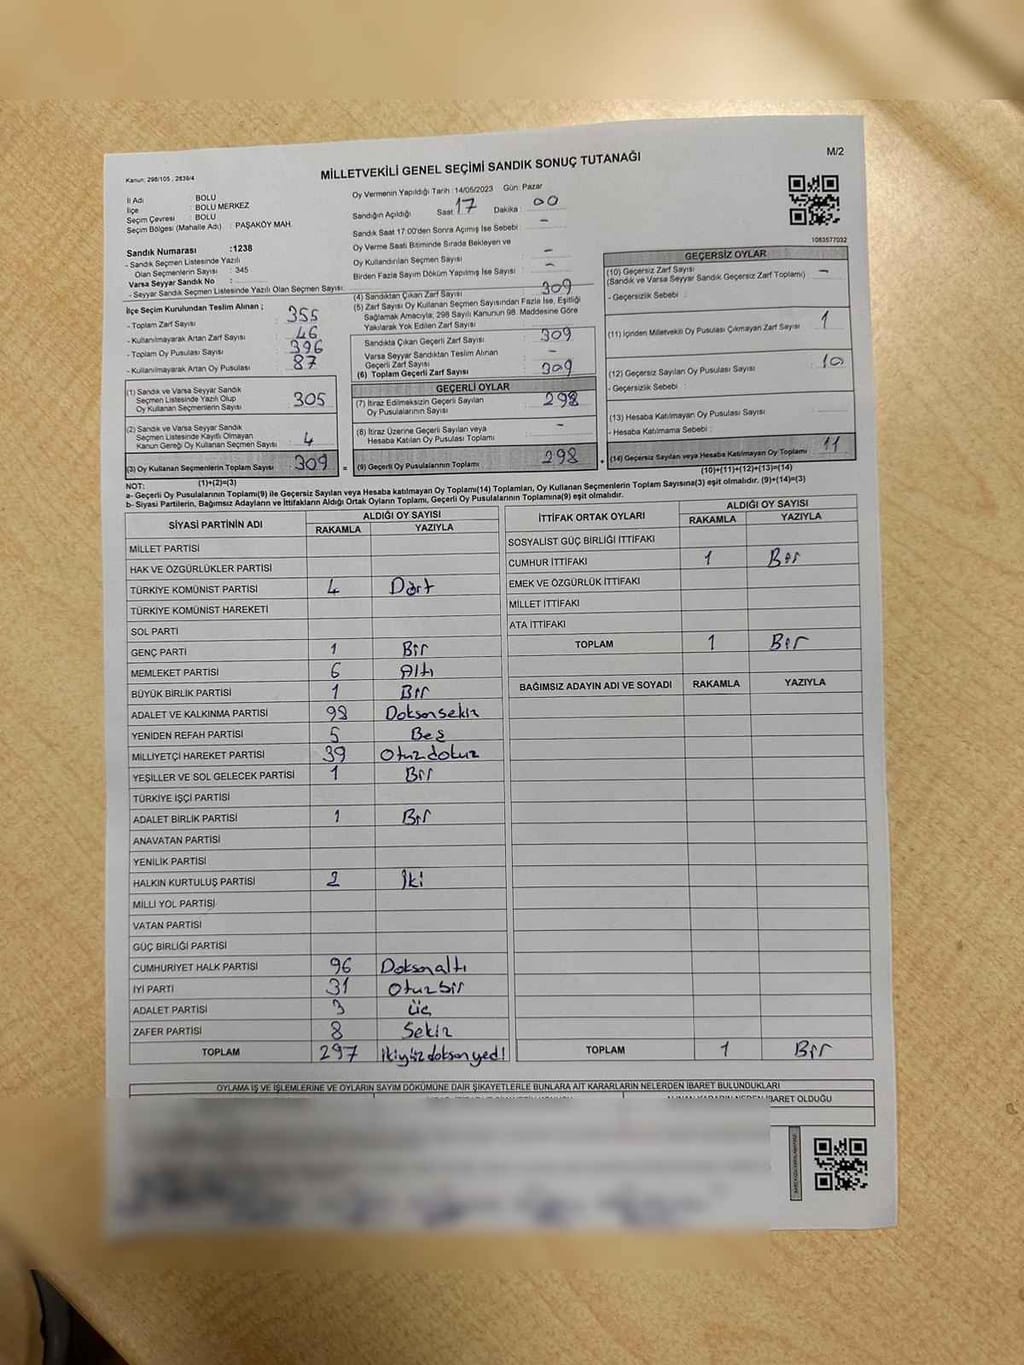 M/2
Kanun: 298/105, 2839/4
MİLLETVEKİLİ GENEL SEÇİMİ SANDIK SONUÇ TUTANAĞI
İl Adı : BOLU
İlçe : BOLU MERKEZ
Seçim Çevresi : BOLU
Seçim Bölgesi (Mahalle Adı) : PAŞAKÖY MAH.
Sandık Numarası :1238
- Sandık Seçmen Listesinde Yazılı
Olan Seçmenlerin Sayısı : 345
Varsa Seyyar Sandık No :
- Seyyar Sandık Seçmen Listesinde Yazılı Olan Seçmen Sayısı:
İlçe Seçim Kurulundan Teslim Alınan ;
- Toplam Zarf Sayısı 355
- Kullanılmayarak Artan Zarf Sayısı 46
- Toplam Oy Pusulası Sayısı 396
- Kullanılmayarak Artan Oy Pusulası 87
(1) Sandık ve Varsa Seyyar Sandık
Seçmen Listesinde Yazılı Olup
Oy Kullanan Seçmenlerin Sayısı 305
(2) Sandık ve Varsa Seyyar Sandık
Seçmen Listesinde Kayıtlı Olmayan
Kanun Gereği Oy Kullanan Seçmen Sayısı 4
(3) Oy Kullanan Seçmenlerin Toplam Sayısı 309 =
(1)+(2)=(3)
Oy Vermenin Yapıldığı Tarih : 14/05/2023 Gün: Pazar
Sandığın Açıldığı Saat 17 Dakika : 00
Sandık Saat 17:00'den Sonra Açımış İse Sebebi : -
Oy Verme Saati Bitiminde Sırada Bekleyen ve
Oy Kullandırılan Seçmen Sayısı : -
Birden Fazla Sayım Döküm Yapılmış İse Sayısı : -
(4) Sandıktan Çıkan Zarf Sayısı 309
(5) Zarf Sayısı Oy Kullanan Seçmen Sayısından Fazla İse, Eşitliği
Sağlamak Amacıyla; 298 Sayılı Kanunun 98. Maddesine Göre
Yakılarak Yok Edilen Zarf Sayısı :
Sandıkta Çıkan Geçerli Zarf Sayısı 309
Varsa Seyyar Sandıktan Teslim Alınan
Geçerli Zarf Sayısı -
(6) Toplam Geçerli Zarf Sayısı 309
GEÇERLİ OYLAR
(7) İtiraz Edilmeksizin Geçerli Sayılan
Oy Pusulalarının Sayısı 298
(8) İtiraz Üzerine Geçerli Sayılan veya
Hesaba Katılan Oy Pusulası Toplamı -
(9) Geçerli Oy Pusulalarının Toplamı 298 +
1083577032
GEÇERSİZ OYLAR
(10) Geçersiz Zarf Sayısı
(Sandık ve Varsa Seyyar Sandık Geçersiz Zarf Toplamı) -
- Geçersizlik Sebebi :
(11) İçinden Milletvekili Oy Pusulası Çıkmayan Zarf Sayısı 1
(12) Geçersiz Sayılan Oy Pusulası Sayısı 10
- Geçersizlik Sebebi :
(13) Hesaba Katılmayan Oy Pusulası Sayısı
- Hesaba Katılmama Sebebi :
(14) Geçersiz Sayılan veya Hesaba Katılmayan Oy Toplamı 11
(10)+(11)+(12)+(13)=(14)
NOT:
a- Geçerli Oy Pusulalarının Toplamı(9) ile Geçersiz Sayılan veya Hesaba katılmayan Oy Toplamı(14) Toplamları, Oy Kullanan Seçmenlerin Toplam Sayısına(3) eşit olmalıdır. (9)+(14)=(3)
b- Siyasi Partilerin, Bağımsız Adayların ve İttifakların Aldığı Ortak Oyların Toplamı, Geçerli Oy Pusulalarının Toplamına(9) eşit olmalıdır.
SİYASİ PARTİNİN ADI ALDIĞI OY SAYISI
RAKAMLA YAZIYLA
MİLLET PARTİSİ
HAK VE ÖZGÜRLÜKLER PARTİSİ
TÜRKİYE KOMÜNİST PARTİSİ 4 Dört
TÜRKİYE KOMÜNİST HAREKETİ
SOL PARTİ
GENÇ PARTİ 1 Bir
MEMLEKET PARTİSİ 6 Altı
BÜYÜK BİRLİK PARTİSİ 1 Bir
ADALET VE KALKINMA PARTİSİ 98 Doksansekiz
YENİDEN REFAH PARTİSİ 5 Beş
MİLLİYETÇİ HAREKET PARTİSİ 39 Otuzdokuz
YEŞİLLER VE SOL GELECEK PARTİSİ 1 Bir
TÜRKİYE İŞÇİ PARTİSİ
ADALET BİRLİK PARTİSİ 1 Bir
ANAVATAN PARTİSİ
YENİLİK PARTİSİ
HALKIN KURTULUŞ PARTİSİ 2 İki
MİLLİ YOL PARTİSİ
VATAN PARTİSİ
GÜÇ BİRLİĞİ PARTİSİ
CUMHURİYET HALK PARTİSİ 96 Doksanaltı
İYİ PARTİ 31 Otuzbir
ADALET PARTİSİ 3 üç
ZAFER PARTİSİ 8 Sekiz
TOPLAM 297 ikiyüzdoksanyedi
İTTİFAK ORTAK OYLARI ALDIĞI OY SAYISI
RAKAMLA YAZIYLA
SOSYALİST GÜÇ BİRLİĞİ İTTİFAKI
CUMHUR İTTİFAKI 1 Bir
EMEK VE ÖZGÜRLÜK İTTİFAKI
MİLLET İTTİFAKI
ATA İTTİFAKI
TOPLAM 1 Bir
BAĞIMSIZ ADAYIN ADI VE SOYADI RAKAMLA YAZIYLA
TOPLAM 1 Bir
OYLAMA İŞ VE İŞLEMLERİNE VE OYLARIN SAYIM DÖKÜMÜNE DAİR ŞİKAYETLERLE BUNLARA AİT KARARLARIN NELERDEN İBARET BULUNDUKLARI
İBARET OLDUĞU